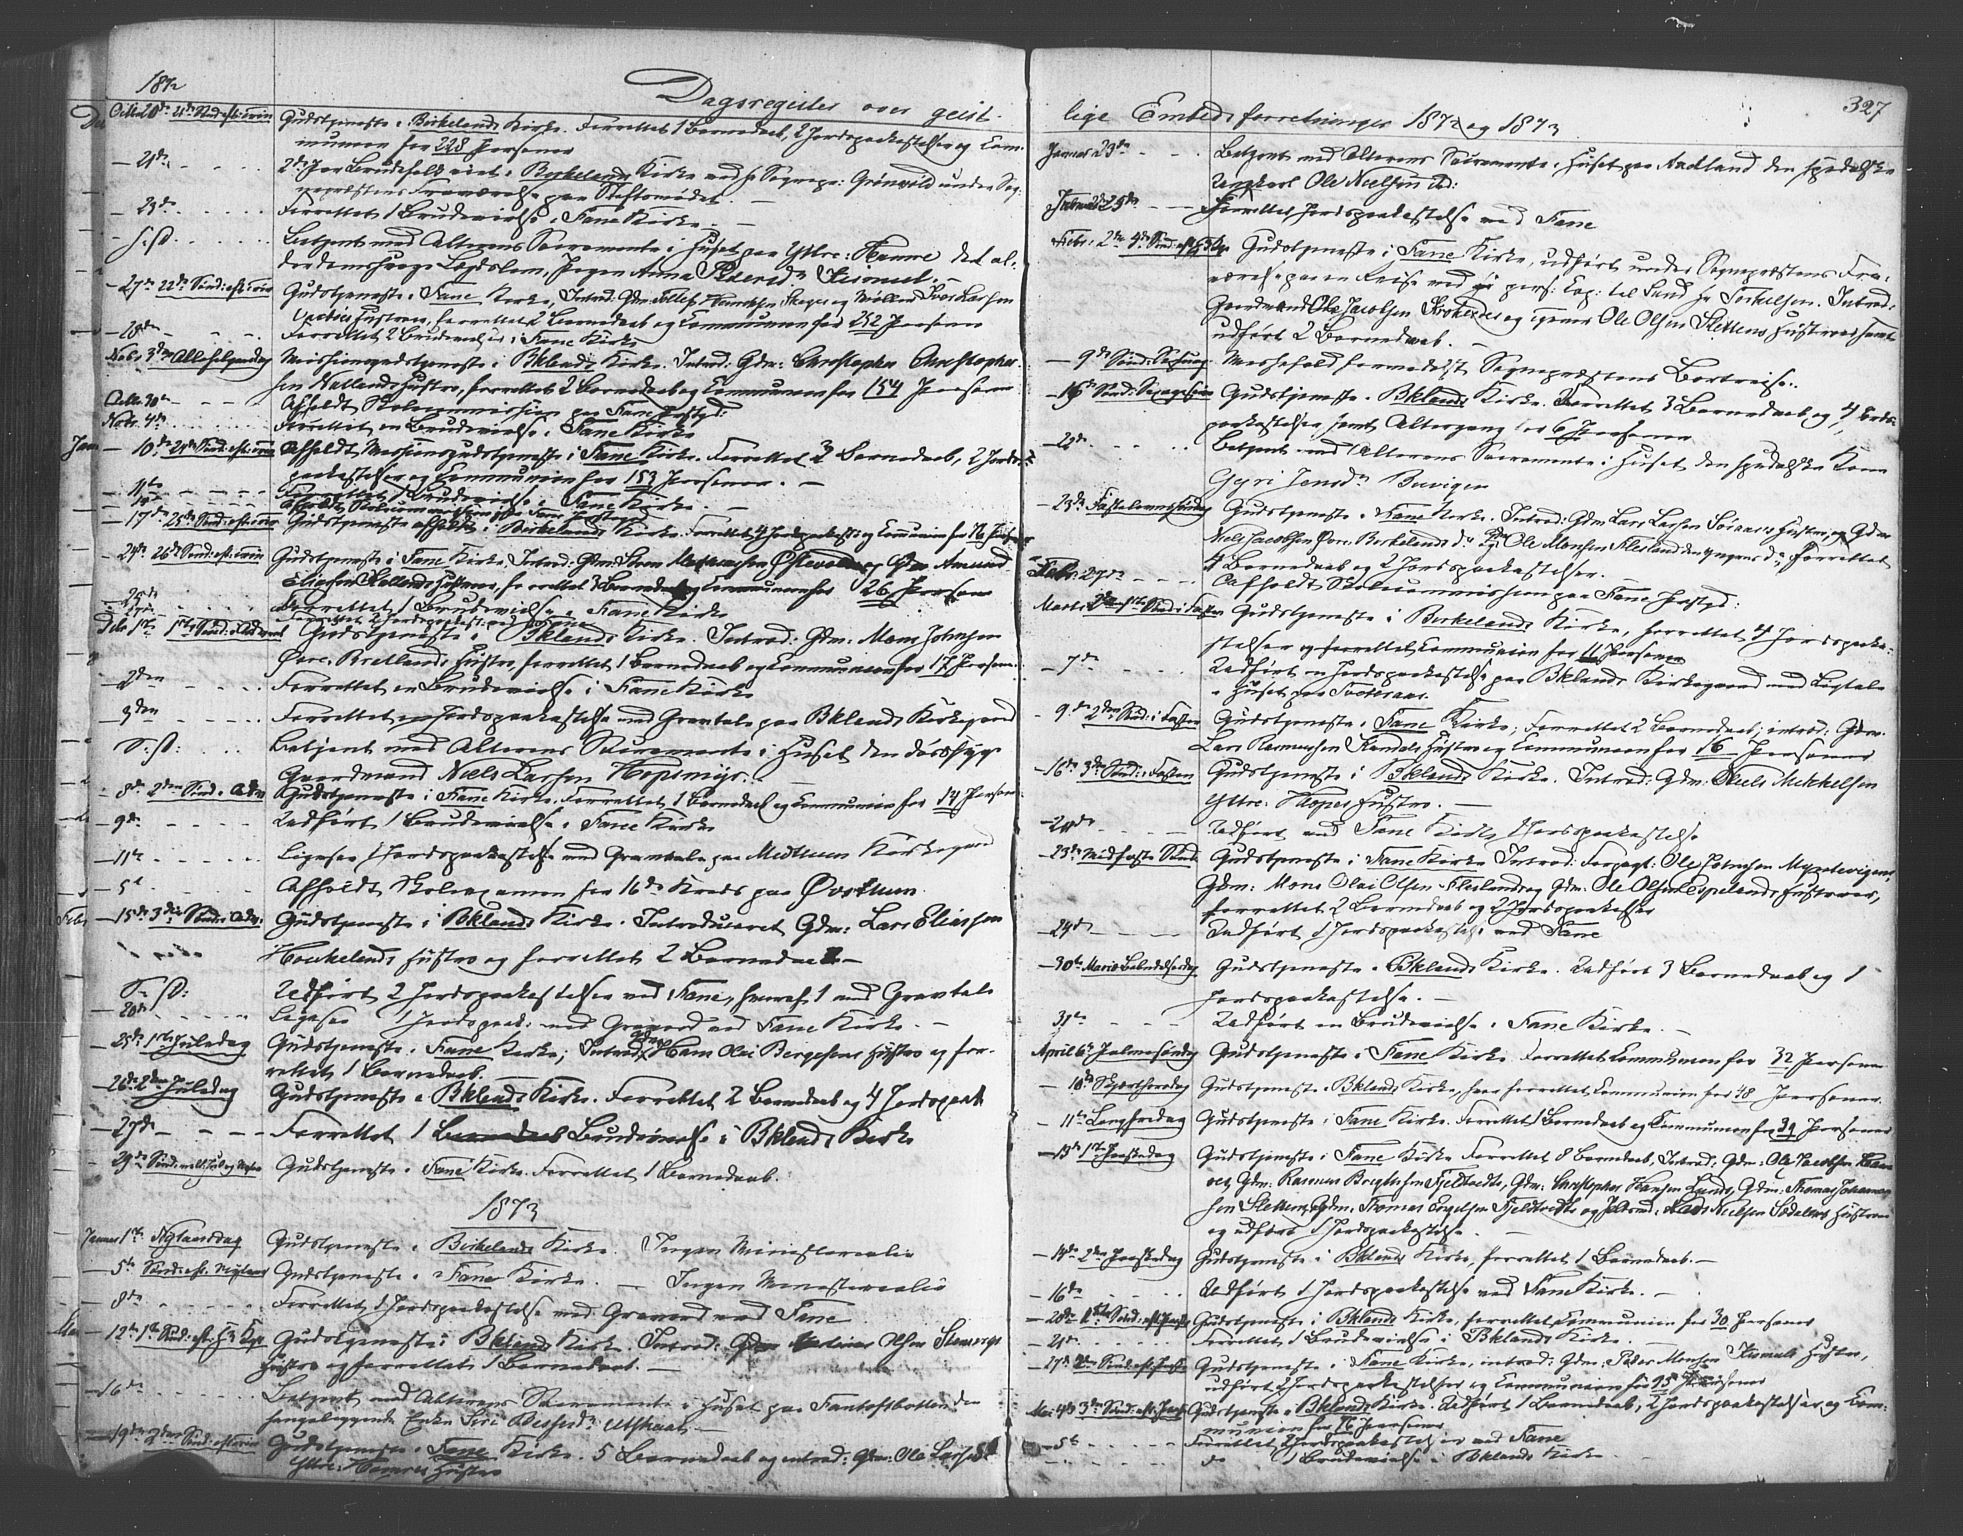 1872
Dagsregister over geist-
Octbr 20de 21de Sønd. eft. Trin Gudstjeneste i Birkelands Kirke. Forrettet 1 Barnedaab, 2 Jordspaakastelser og Com-
munion for 228 Personer
— 21de 2det Par Brudefolk viet i Birkelands Kirke ved Hr Sognepr: Grönvold under Sog-
nepræstens Fraværelse paa Stiftsmødet. —
— 23de Forrettet 1 Brudevielse i Fane Kirke —
S: D: Betjent med Alterens Sacramente i Huset paa Yttre: Hamre det al-
derdomssvage Lægdslem, Pigen Anna Pedersdr
— 27de 22de Sønd: eft: Trin Gudstjeneste i Fane Kirke, Introd: Gdm: og Lars Larsen
Hustruer, forrettet 2 Barnedaab og Communion for 252 Personer
— 28de Forrettet 2 Brudevielser i Fane Kirke
Nobr. 3de Allehelgensdag Missionsgudstjeneste i Bklands Kirke. Introd: Gdm: Christopher Christopher-
sen Natlands Hustru, forrettet 2 Barnedaab og Communion for 154 Personer
Octbr 30te Afholdt Skolecommission paa Fane Prstgd:
Nobr. 4de Forrettet en Brudevielse i Fane Kirke
— 10de 24de Sønd: eft: Trin Afholdt Missionsgudstjeneste i Fane Kirke. Forrettet 3 Barnedaab, 2 Jords-
paakastelser og Communion for 153 Personer. —
— 11te Forrettet 1 Brudevielse i Fane Kirke. —
Afholdt Skolecommission paa Fane Prstgd
— 17de 25de Sønd: eft: Trin Gudstjeneste afholdt i Birkelands Kirke. Forrettet 4 Jordspaakast: og Communion for 76 Personer
— 24de 26de Sønd: eft: Trin Gudstjeneste i Fane Kirke, Introd: Gdm: Østevold og Gdm Amund
Eliasen Hustruer, forrettet 3 Barnedaab og Communion for 26 Personer
— 25de Forrettet 1 Brudevielse i Fane Kirke
— 27de Forrettet 2 Jordspaakast: ved Fane
Dcbr 1ste 1ste Sønd: i Advent Gudstjeneste i Bklands Kirke. Introd: Gdm: Mons Johnsen
Øvre: Bratlands Hustru, forrettet 1 Barnedaab og Communion for 17 Personer
— 2den Forrettet en Brudevielse i Fane Kirke
— 3den Forrettet en Jordspaakastelse med Gravtale paa Bklands Kirkegaard
S: D: Betjent med Alterens Sacramente i Huset den dødssyge
Gaardmand Niels Larsen Hopsmyr. —
— 8de 2den Sønd. i Adv: Gudstjeneste i Fane Kirke. Forrettet 1 Barnedaab og Communion for 14 Personer
— 9de Udført 1 Brudevielse i Fane Kirke
— 11te Ligesaa 1 Jordspaakastelse med Gravtale paa Midttun Kirkegaard
— 5te Afholdt Skolexamen for 16de Kreds paa Øvstun.
— 15de 3die Sønd: i Adv: Gudstjeneste i Bklands Kirke. Introduceret Gdm: Lars Eliassen
Haukelands Hustru og forrettet 2 Barnedaab —
S: D: Udført 2 Jordspaakastelser ved Fane, hvoraf 1 med Gravtale
— 20de Ligesaa 1 Jordspaak: med Gravord ved Fane Kirke. —
— 25de 1ste Juledag Gudstjeneste i Fane Kirke, Introd: Gdm: Hans Olai Bergesens Hustru og for-
rettet 1 Barnedaab. —
— 26de 2den Juledag Gudstjeneste i Bklands Kirke. Forrettet 2 Barnedaab og 4 Jordspaak
— 27de Forrettet 1 Brudevielse i Bklands Kirke
— 29de Sønd: mell: Jul og Nytaar Gudstjeneste i Fane Kirke. Forrettet 1 Barnedaab.
1873
Januar 1ste Nytaarsdag Gudstjeneste i Birkelands Kirke. Ingen Ministerialia
— 5te Sønd: eft. Nytaar Gudstjeneste i Fane Kirke. — Ingen Ministerialia
— 8de Forrettet 1 Jordspaakastelse med Gravord ved Fane
— 12te 1ste Sønd: eft: H3 Kgr Gudstjeneste i Bklands Kirke. Introd: Gdm Olsen
Hustru og forrettet 1 Barnedaab. —
— 16de Betjent med Alterens Sacramente i Huset paa Fantoftbotten den
sengeliggende Enke Siri —
— 19de 2den Sønd: eft: Gudstjeneste i Fane Kirke. 5 Barnedaab og introd: Gdm: Ole Larsen
Yttre: Hamres Hustru
327
lige Embedsforretninger 1872 og 1873
Januar 23de Betjent med Alterens Sacramente i Huset paa Aadland den spedalske
Ungkarl Ole Nielsen ibd:
29de Forrettet Jordspaakastelse ved Fane
Febr: 2den 4de Sønd: eft H3Kgr Gudstjeneste i Fane Kirke, udført under Sognepræstens Fra-
værelse paa en Reise ved pers: Cap: til Sund Hr Torkelsen. Introd:
Gaardmand Ole Jacobsen og Ole Olsen Slettens Hustruer samt
udført 2 Barnedaab. —
— 9de Sønd: Messefald formedelst Sognepræstens Bortreise.
— 16de Sønd: Sexagesima Gudstjeneste i Bklands Kirke. Forrettet 3 Barnedaab og 4 Jords-
paakastelser, samt Altergang for 6 Personer
— 20de Betjent med Alterens Sacramente i Huset den spedalske Kone
Gyri Jensdr Buvigen
— 23de Fastelavns Søndag Gudstjeneste i Fane Kirke. Introd: Gdm: Lars Larsen Hustru, og Gdm
Niels Jacobsen Øvre: Birkelands do og Ole Monsen Fleslands do. Forrettet
4 Barnedaab og 2 Jordspaakastelser.
Febr: 27de Afholdt Skolecommission paa Fane Prstgd:
Marts 2den 1ste Sønd i Fasten Gudstjeneste i Birkelands Kirke, forrettet 4 Jordspaaka-
stelser og forrettet Communion for 11 Personer
— 7de Udført en Jordspaakastelse paa Bklands Kirkegaard med Ligtale
i Huset paa
— 9de 2den Sønd: i Fasten Gudstjeneste i Fane Kirke, forrettet 2 Barnedaab; introd: Gdm:
Lars Rasmussen Hustru og Communion for 16 Personer
— 16de 3die Sønd: i Fasten Gudstjeneste i Bklands Kirke. Introd: Gdm: Niels Mikkelsen
Yttre: Hopes Hustru. —
Udført ved Fane Kirke 1 Jordspaakastelse
— 23de Midfaste Sønd: Gudstjeneste i Fane Kirke. Introd: Forpagt: Ole Johnsen
Gdm: Mons Olai Olsen Fleslands og Gdm: Ole Olsen Espelands Hustruer,
forrettet 2 Barnedaab og 2 Jordspaakastelser
— 24de Udført 1 Jordspaakastelse ved Fane
— 30te Mariæ Bebudelsesdag Gudstjeneste i Bklands Kirke. Udført 3 Barnedaab og 1
Jordspaakastelse. —
31te Udført en Brudevielse i Fane Kirke. —
April 6te Palmesøndag Gudstjeneste i Fane Kirke. Forrettet Communion for 32 Personer
— 10de Skjærthorsdag Gudstjeneste i Bklands Kirke, hvor forrettet Communion for 48 Personer.
— 11te Langfredag Gudstjeneste i Fane Kirke. Forrettet 1 Barnedaab og Communion for 39 Personer
— 13de 1ste Paaskedag Gudstjeneste i Fane Kirke. Forrettet 8 Barnedaab, Introd: Gdm: Ole Jacobsen
Gdm: Rasmus Brigtsen Fjeldtvedts, Gdm: Christopher Hansen Lunds, Gdm: Thomas Johannes-
sen Slettens, Gdm: Thomas Engelsen Fjeldtvedts og Nielsen Hustruer
og udført 1 Jordspaakastelse. —
— 14de 2den Paaskedag Gudstjeneste i Bklands Kirke, forrettet 1 Barnedaab. —
— 16de Udført 1 Jordspaakastelse ved Fane Kirke. —
— 20de 1ste Sønd: eft: Paaske Gudstjeneste i Bklands Kirke, forrettet Communion for 30 Personer
— 21de Forrettet 1 Brudevielse i Bklands Kirke.
— 27de 2den Sønd: eft: Paaske Gudstjeneste i Fane Kirke, introd: Gdm: Peder Monsen Hustru,
udført 2 Jordspaakastelser og Communion for 95 Personer
Mai 4de 3die Sønd: eft: Paaske Gudstjeneste i Bklands Kirke. Udført 1 Barnedaab, 2 Jordspaakastelser og Com-
munion for 76 Personer
— 5te Forrettet 2 Jordspaakastelser ved Fane
do 1 Brudevielse i Bklands Kirke